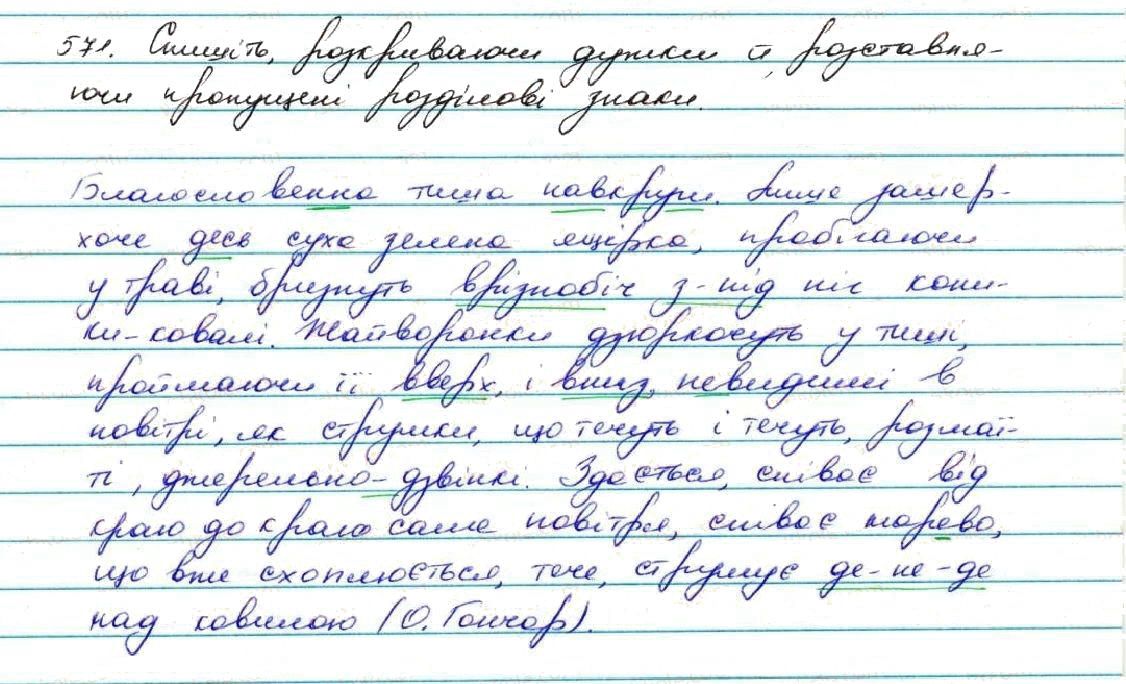 571. Спишіть, розкриваючи дужки й розставля-
ючи пропущені розділові знаки.
Благословенна тиша навкруги. Лише зашер-
хоче десь суха зелена ящірка, пробігаючи
у траві, бризнуть врізнобіч з-під ніг кони-
ки-ковалі. Жайворонки дзюркочуть у тиші,
проймаючи її вверх, і вниз, невидимі в
повітрі, як струмки, що течуть і течуть, розмаї-
ті, джерельно-дзвінкі. Здається, співає від
краю до краю саме повітря, співає марево,
що вже схоплюється, тече, струмує де-не-де
над ковилою (О. Гончар).